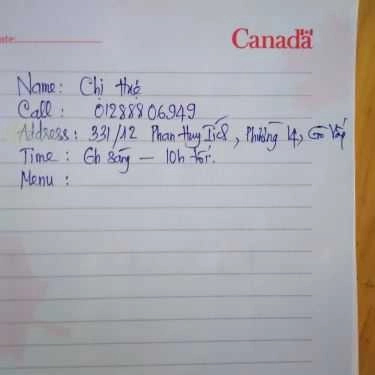 ate:
Canada
Name: Chị thọ
Call : 01288806949
Address: 331/12 Phan Huy Ích, Phường 14, Gò Vấp
Time : 6h sáng – 10h tối.
Menu :